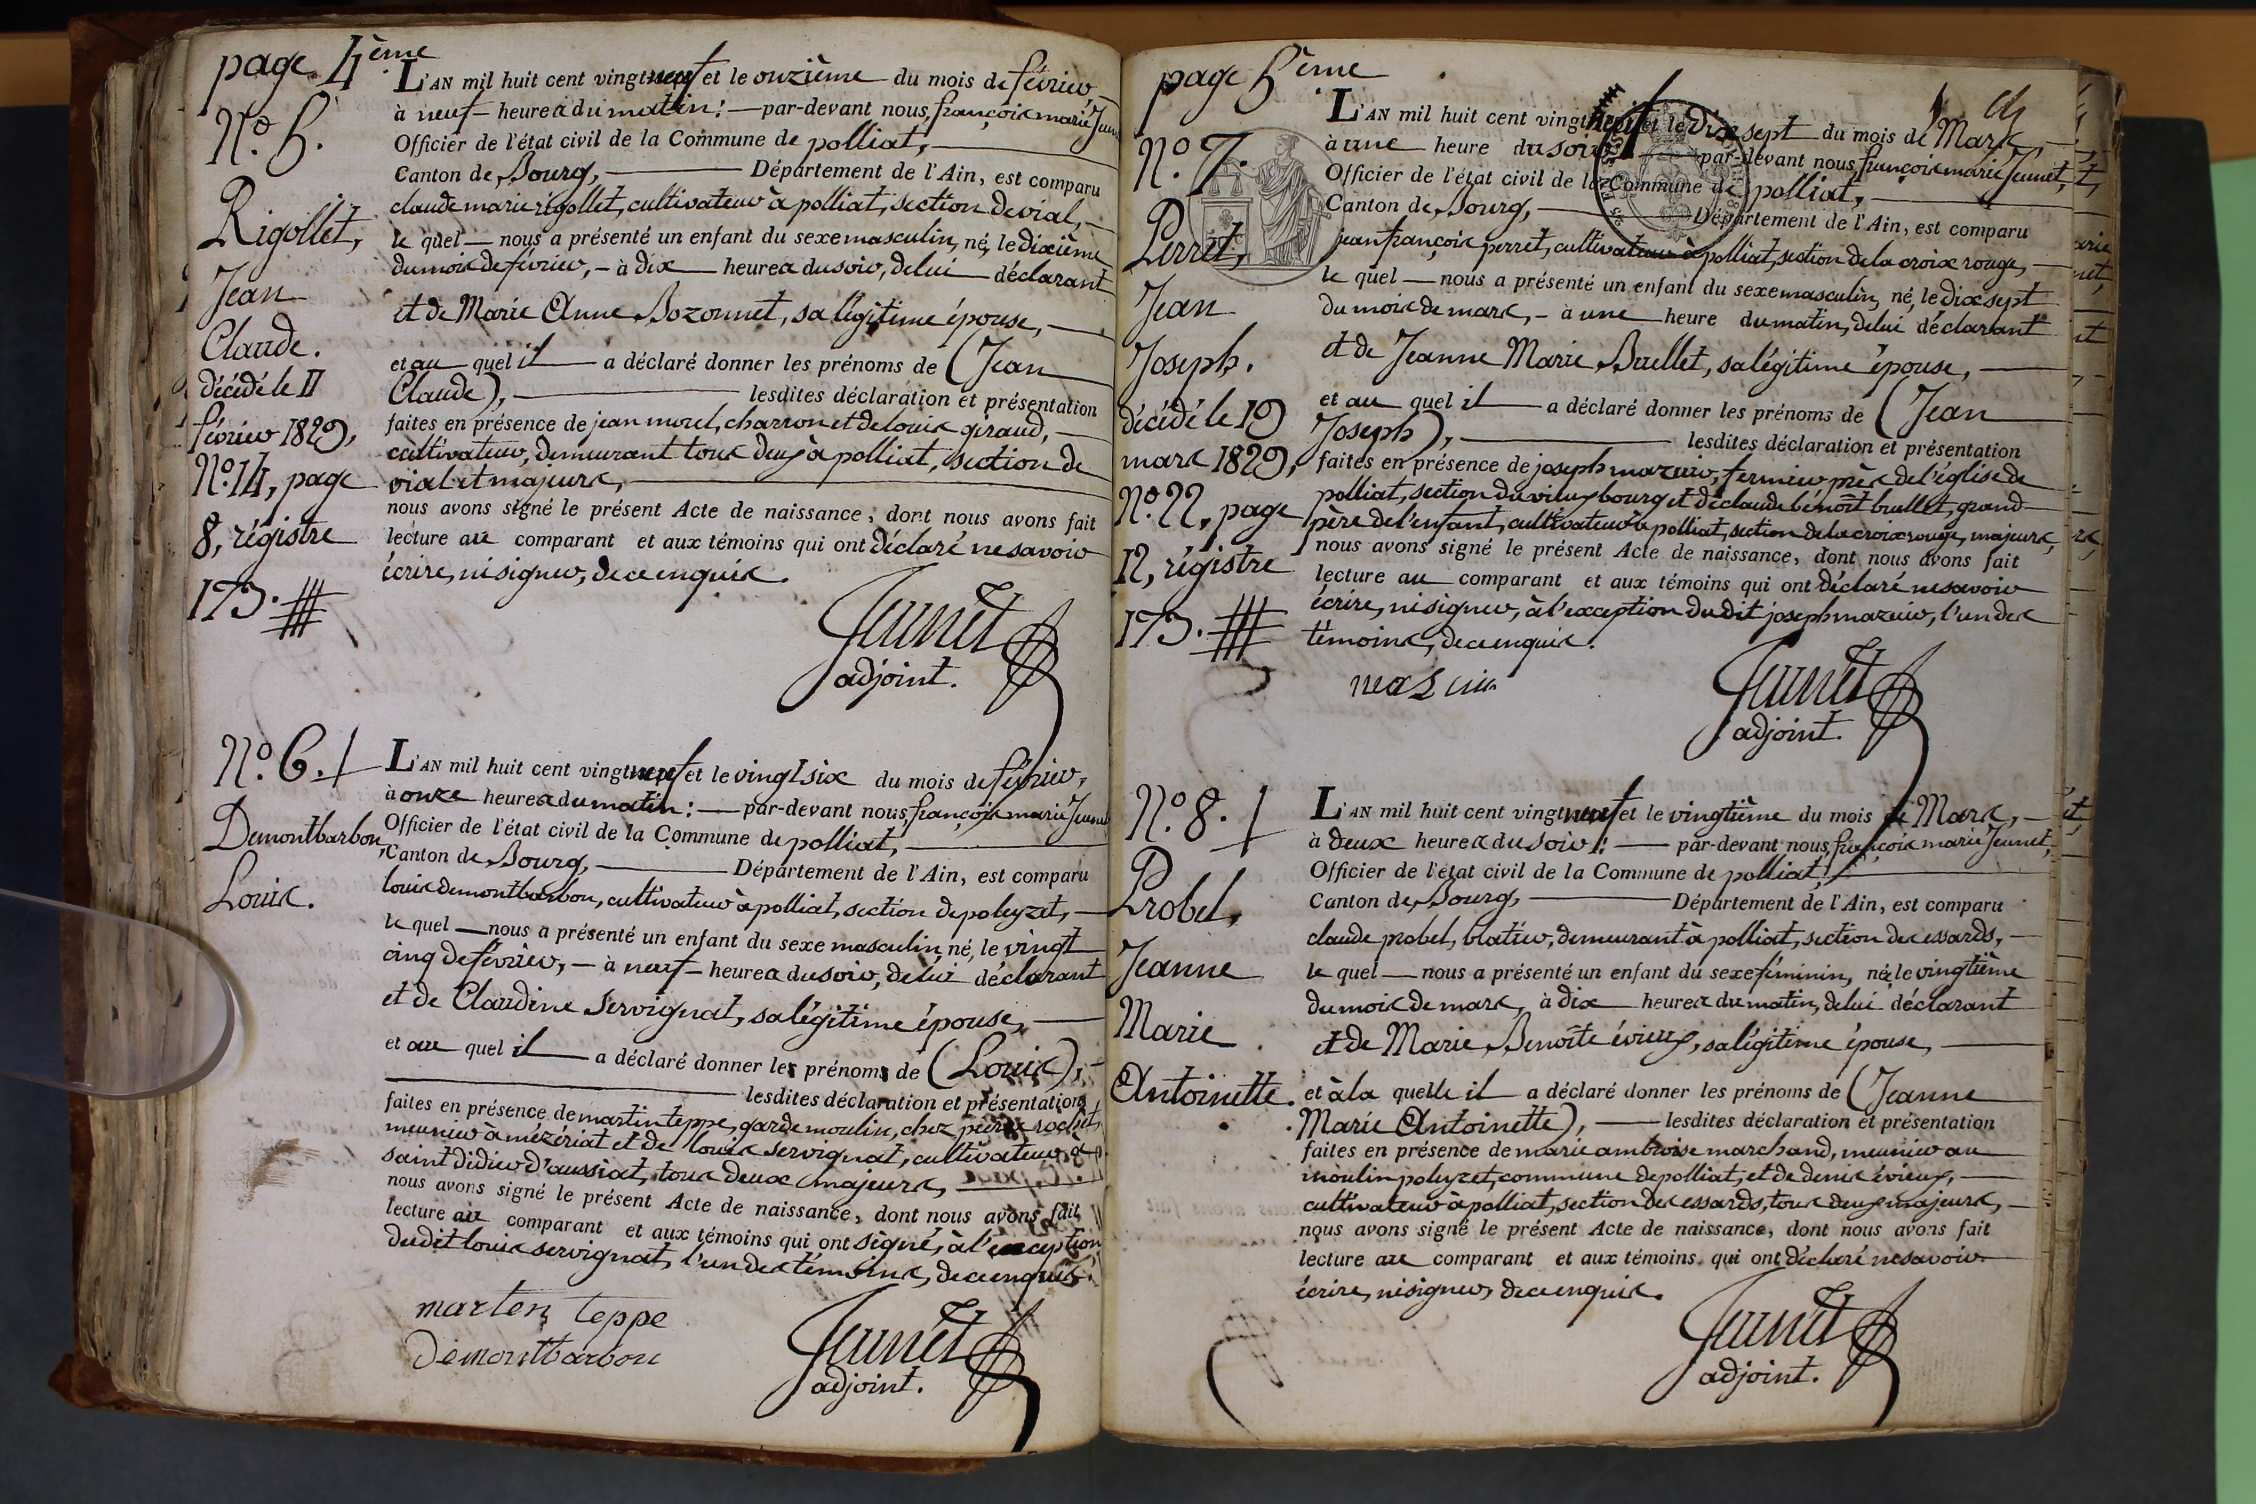 page 4ème
N.° 5.
Rigollet,
Jean
Claude.
décédé le 11
février 1829,
N.° 14, page
8, régistre
173.
L'AN mil huit cent vingt neuf et le onzième du mois de février
à neuf heures du matin: par-devant nous, françois marie Jeunet
Officier de l'état civil de la Commune de polliat,
Canton de Bourg, Département de l'Ain, est comparu
claude marie rigollet, cultivateur à polliat, section de vial,
le quel nous a présenté un enfant du sexe masculin, né, le dixième
du mois de février, à dix heures du soir, de lui déclarant
et de Marie Anne Bozonnet, sa légitime épouse,
et au quel il a déclaré donner les prénoms de (Jean
Claude), lesdites déclaration et présentation
faites en présence de jean morel, charron et de louis giraud,
cultivateur, demeurant tous deux à polliat, section de
vial et majeurs,
nous avons signé le présent Acte de naissance, dont nous avons fait
lecture au comparant et aux témoins qui ont déclaré ne savoir
écrire, ni signer, de ce enquis.
Jeunet
adjoint.
N.° 6.
Demontbarbon,
Louis.
L'AN mil huit cent vingt neuf et le vingt six du mois de février,
à onze heures du matin: par-devant nous, françois marie Jeunet
Officier de l'état civil de la Commune de polliat,
Canton de Bourg, Département de l'Ain, est comparu
louis demontbarbon, cultivateur à polliat, section de poleyzet,
le quel nous a présenté un enfant du sexe masculin, né, le vingt
cinq de février, à neuf heures du soir, de lui déclarant
et de Claudine Servignat, sa légitime épouse,
et au quel il a déclaré donner les prénoms de (Louis),
lesdites déclaration et présentation
faites en présence de martin teppe, garde moulin, chez pierre rochet,
meunier à mézériat et de louis servignat, cultivateur à
saint didier d'aussiat, tous deux majeurs,
nous avons signé le présent Acte de naissance, dont nous avons fait
lecture au comparant et aux témoins qui ont signé, à l'exception
du dit louis servignat, l'un des témoins, de ce enquis.
marten teppe
demontbarbon
Jeunet
adjoint.
page 5ème
N.° 7.
Perret,
Jean
Joseph.
décédé le 19
mars 1829,
N.° 22, page
12, régistre
173.
L'AN mil huit cent vingt neuf et le dix sept du mois de Mars,
à une heure du soir par-devant nous, françois marie Jeunet,
Officier de l'état civil de la Commune de polliat,
Canton de Bourg, Département de l'Ain, est comparu
jean françois perret, cultivateur à polliat, section de la croix rouge,
le quel nous a présenté un enfant du sexe masculin, né, le dix sept
du mois de mars, à une heure du matin, de lui déclarant
et de Jeanne Marie Buellet, sa légitime épouse,
et au quel il a déclaré donner les prénoms de (Jean
Joseph), lesdites déclaration et présentation
faites en présence de joseph mazuir, fermier près de l'église de
polliat, section du vieux bourg et de claude benoît buellet, grand
père de l'enfant, cultivateur à polliat, section de la croix rouge, majeurs,
nous avons signé le présent Acte de naissance, dont nous avons fait
lecture au comparant et aux témoins qui ont déclaré ne savoir
écrire, ni signer, à l'exception du dit joseph mazuir, l'un des
témoins, de ce enquis.
Jeunet
adjoint.
N.° 8.
Probel,
Jeanne
Marie
Antoinette.
L'AN mil huit cent vingt neuf et le vingtième du mois de Mars,
à deux heures du soir: par-devant nous, françois marie Jeunet,
Officier de l'état civil de la Commune de polliat,
Canton de Bourg, Département de l'Ain, est comparu
claude probel, blatier, demeurant à polliat, section des essards,
le quel nous a présenté un enfant du sexe féminin, née le vingtième
du mois de mars, à dix heures du matin, de lui déclarant
et de Marie Benoîte évieux, sa légitime épouse,
et à la quelle il a déclaré donner les prénoms de (Jeanne
Marie Antoinette), lesdites déclaration et présentation
faites en présence de marie ambroise marchand, meunier au
moulin poleyzet, commune de polliat, et de denis évieux,
cultivateur à polliat, section des essards, tous deux majeurs,
nous avons signé le présent Acte de naissance, dont nous avons fait
lecture au comparant et aux témoins qui ont déclaré ne savoir
écrire, ni signer, de ce enquis.
Jeunet
adjoint.